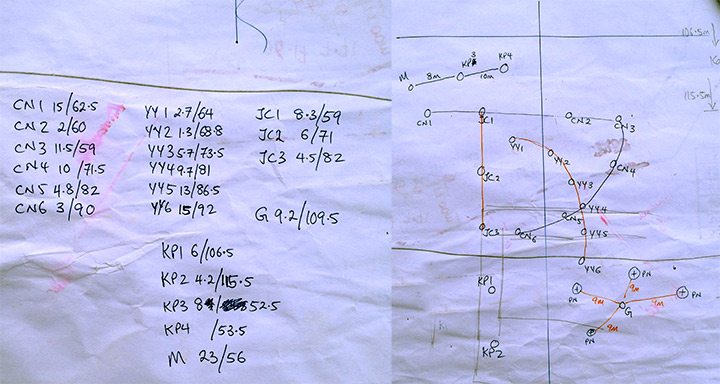 K
CN1 15/62.5
CN2 2/60
CN3 11.5/59
CN4 10/71.5
CN5 4.8/82
CN6 3/90
YY1 2.7/64
YY2 1.3/68.8
YY3 5.7/73.5
YY4 9.7/81
YY5 13/86.5
YY6 15/92
JC1 8.3/59
JC2 6/71
JC3 4.5/82
G 9.2/109.5
KP1 6/106.5
KP2 4.2/115.5
KP3 8 52.5
KP4 /53.5
M 23/56
106.5m
115.5m
M 8m KP3 10m KP4
CN1 JC1 CN2 CN3
YY1 YY2
CN4
JC2 YY3
YY4
CN5
JC3 CN6 YY5
YY6
KP1 PN
9m
PN 9m 9m PN
G
9m
PN
KP2